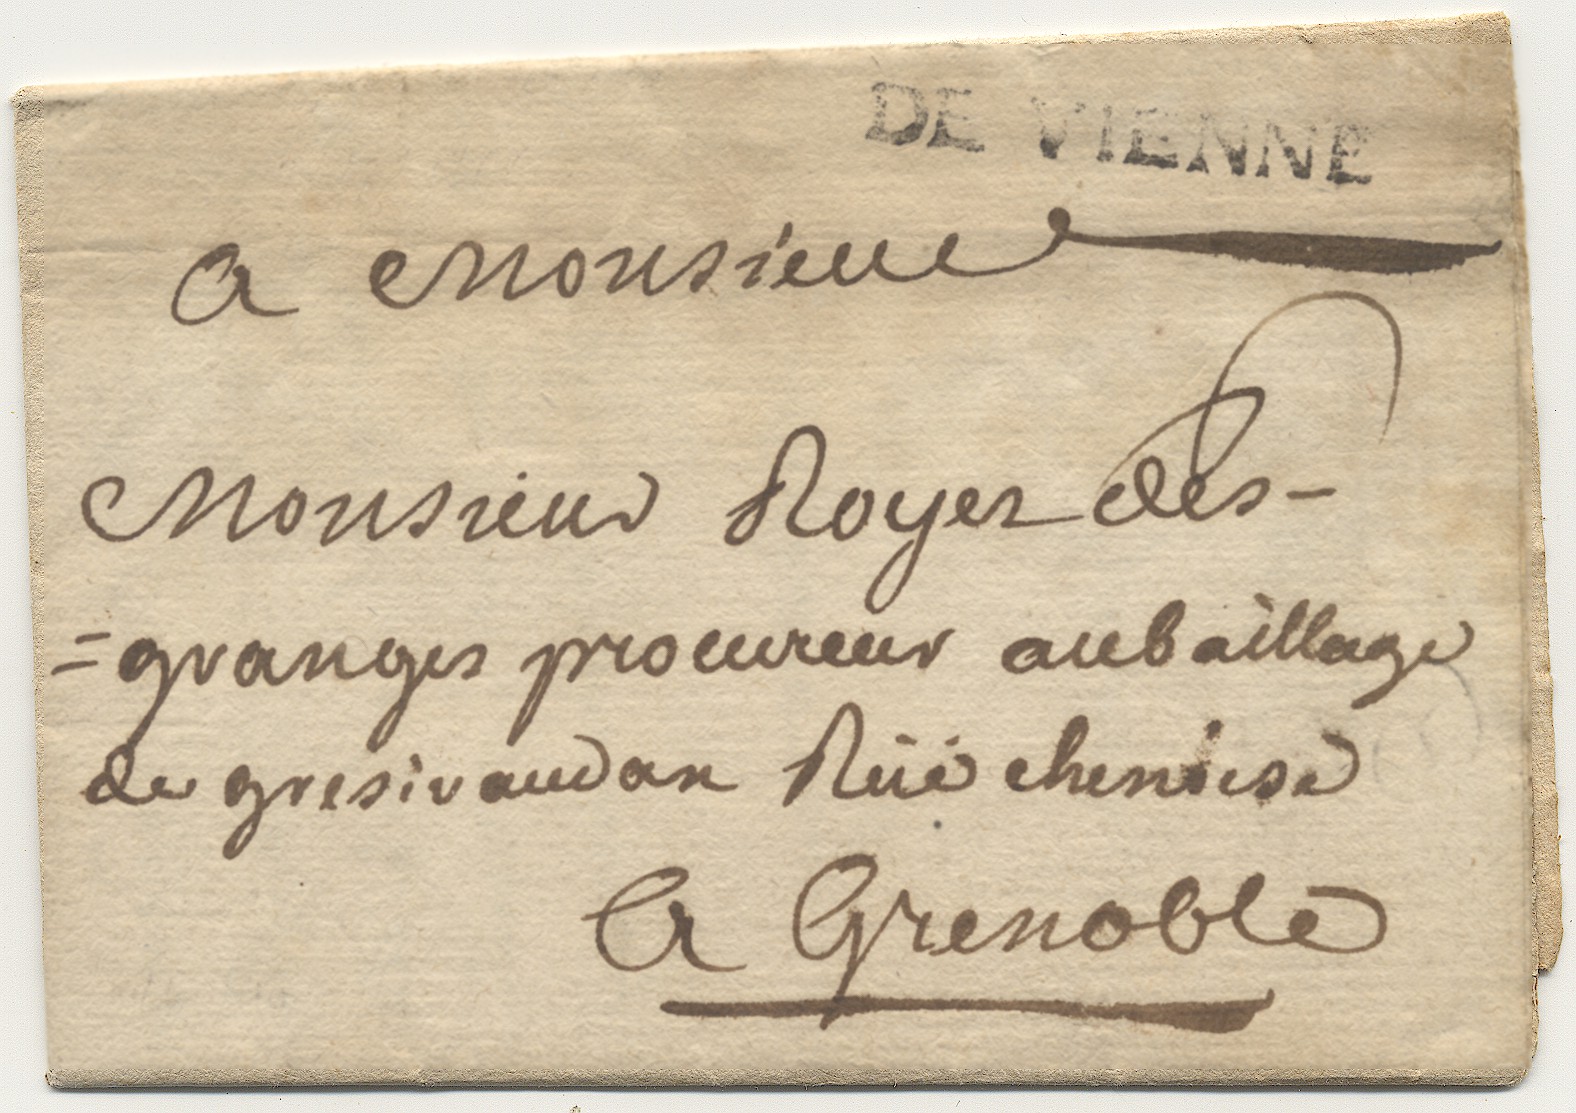 DE VIENNE
a Monsieur
Monsieur Royer des-
=granges procureur au bailliage
de gresivaudan Rüe chenoise
a Grenoble